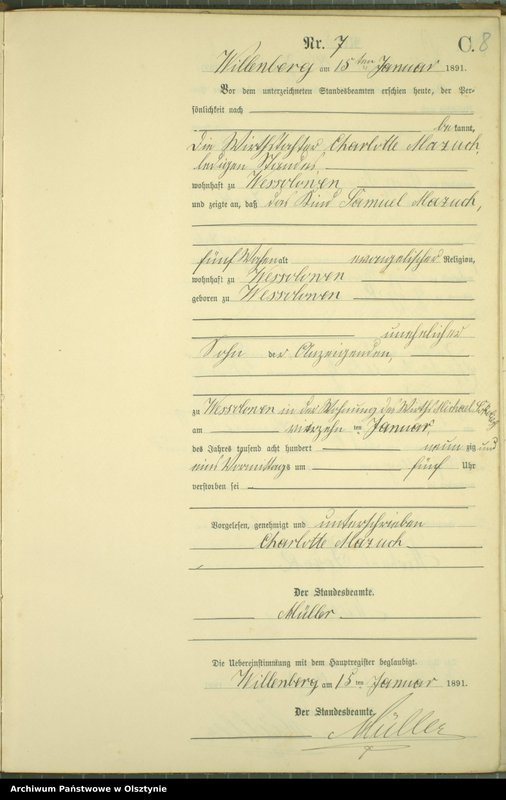 Nr. 7 C. 8
Willenberg am 15ten Januar 1891.
Vor dem unterzeichneten Standesbeamten erschien heute, der Per-
sönlichkeit nach
bekannt,
die Wirthstochter Charlotte Mazuch,
ledigen Standes,
wohnhaft zu Wessolowen
und zeigte an, daß das Kind Samuel Mazuch,
fünf Wochen alt evangelischer Religion,
wohnhaft zu Wessolowen
geboren zu Wessolowen
unehelicher
Sohn der Anzeigenden,
zu Wessolowen in der Wohnung des Wirths Michael
am vierzehn ten Januar
des Jahres tausend acht hundert neunzig und
eins Vormittags um fünf Uhr
verstorben sei
Vorgelesen, genehmigt und unterschrieben
Charlotte Mazuch
Der Standesbeamte.
Müller
Die Uebereinstimmung mit dem Hauptregister beglaubigt.
Willenberg am 15ten Januar 1891.
Der Standesbeamte.
Müller
Archiwum Państwowe w Olsztynie